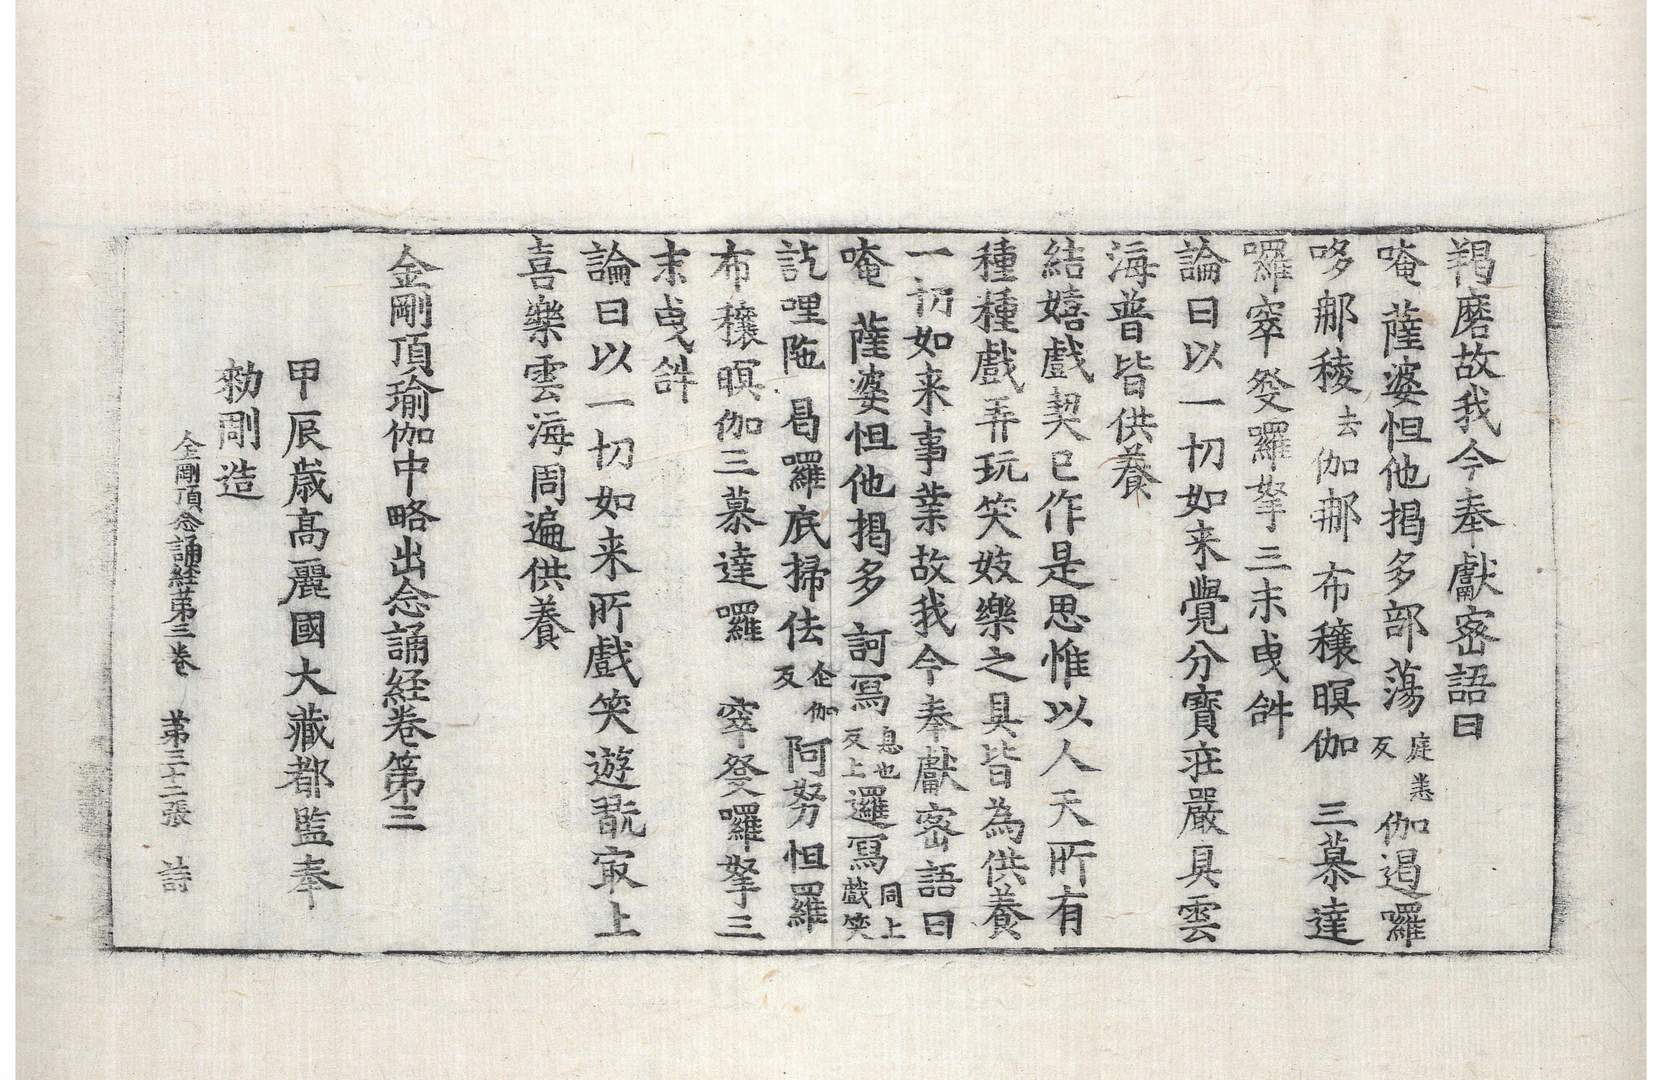 羯磨故我今奉獻密語曰
唵 薩婆怛他揭多部蕩庭養反伽遏囉
哆那稜去伽那 布穰暝伽 三慕達
囉窣發囉拏三末曳𤙖
論曰以一切如来覺分寶莊嚴具雲
海普皆供養
結嬉戲契已作是思惟以人天所有
種種戲弄玩笑妓樂之具皆為供養
一切如来事業故我今奉獻密語曰
唵 薩婆怛他揭多 訶寫息也反上邏寫同上戲笑
訖哩陁 曷囉底掃佉企伽反阿努怛羅
布穰暝伽三慕達囉 窣發囉拏三
末曳𤙖
論曰以一切如来所戲笑遊翫㝡上
喜樂雲海周遍供養
金剛頂瑜伽中略出念誦経卷第三
甲辰歳高麗國大藏都監奉
勑剛造
金剛頂念誦経苐三卷 苐三十二張 詩